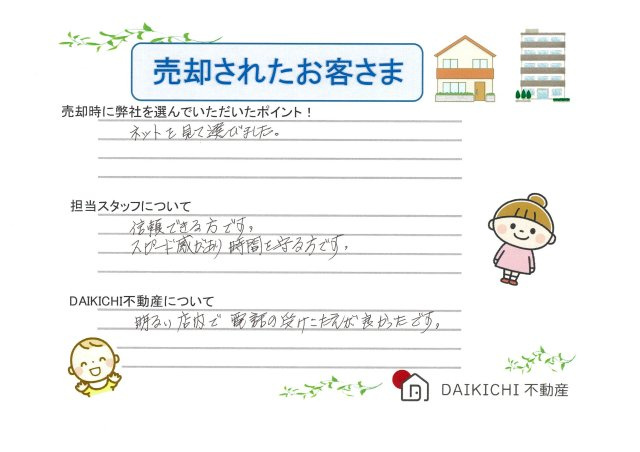 売却されたお客さま
売却時に弊社を選んでいただいたポイント！
ネットを見て選びました。
担当スタッフについて
信頼できる方です。
スピード感があり時間を守る方です。
DAIKICHI不動産について
明るい店内で電話の受けこたえが良かったです。
DAIKICHI 不動産